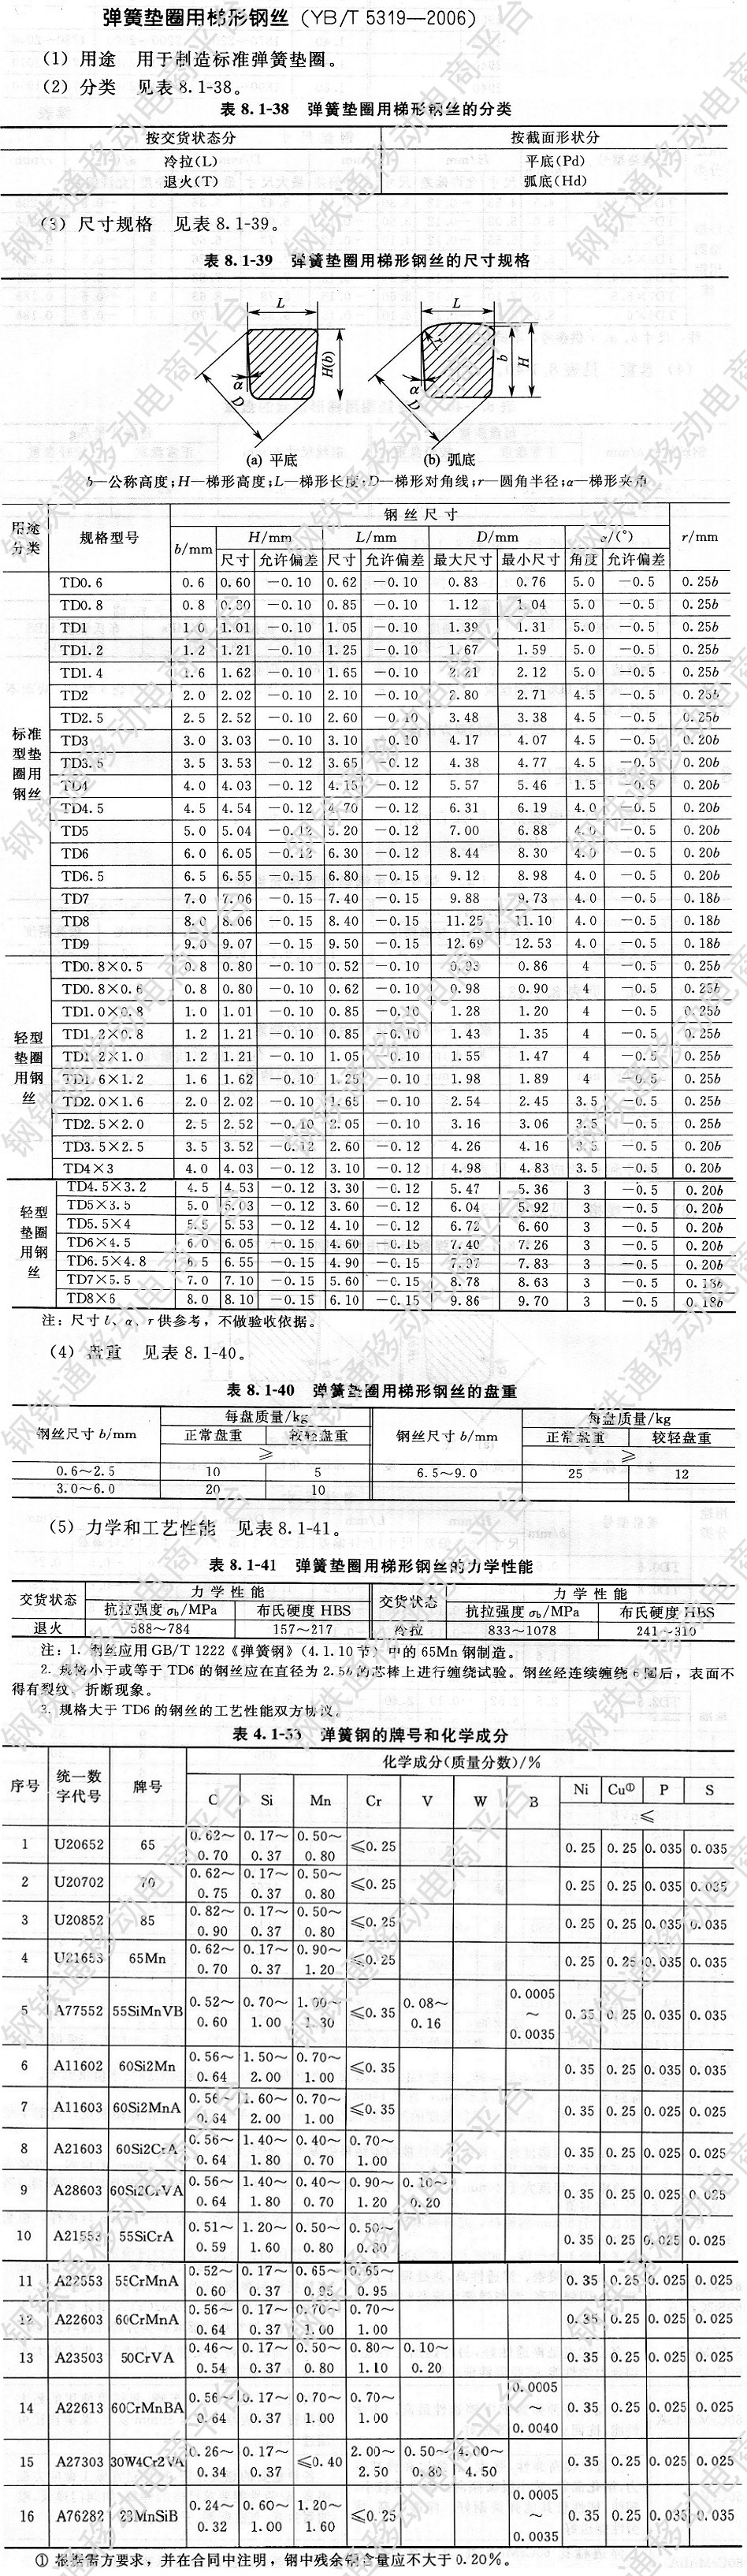 弹簧垫圈用梯形钢丝(YB/T 5319—2006)
(1) 用途 用于制造标准弹簧垫圈。
(2) 分类 见表 8.1-38。
表 8.1-38 弹簧垫圈用梯形钢丝的分类
按交货状态分 按截面形状分
冷拉(L) 平底(Pd)
退火(T) 弧底(Hd)
(3) 尺寸规格 见表 8.1-39。
表 8.1-39 弹簧垫圈用梯形钢丝的尺寸规格
L L
H(b) b H
α D r α D
(a) 平底 (b) 弧底
b—公称高度;H—梯形高度;L—梯形长度;D—梯形对角线;r—圆角半径;α—梯形夹角
用途分类 规格型号 钢丝尺寸
b/mm H/mm L/mm D/mm α/(°) r/mm
尺寸 允许偏差 尺寸 允许偏差 最大尺寸 最小尺寸 角度 允许偏差
标准型垫圈用钢丝
TD0.6 0.6 0.60 −0.10 0.62 −0.10 0.83 0.76 5.0 −0.5 0.25b
TD0.8 0.8 0.80 −0.10 0.85 −0.10 1.12 1.04 5.0 −0.5 0.25b
TD1 1.0 1.01 −0.10 1.05 −0.10 1.39 1.31 5.0 −0.5 0.25b
TD1.2 1.2 1.21 −0.10 1.25 −0.10 1.67 1.59 5.0 −0.5 0.25b
TD1.4 1.6 1.62 −0.10 1.65 −0.10 2.21 2.12 5.0 −0.5 0.25b
TD2 2.0 2.02 −0.10 2.10 −0.10 2.80 2.71 4.5 −0.5 0.25b
TD2.5 2.5 2.52 −0.10 2.60 −0.10 3.48 3.38 4.5 −0.5 0.25b
TD3 3.0 3.03 −0.10 3.10 −0.10 4.17 4.07 4.5 −0.5 0.20b
TD3.5 3.5 3.53 −0.12 3.65 −0.12 4.38 4.77 4.5 −0.5 0.20b
TD4 4.0 4.03 −0.12 4.15 −0.12 5.57 5.46 1.5 −0.5 0.20b
TD4.5 4.5 4.54 −0.12 4.70 −0.12 6.31 6.19 4.0 −0.5 0.20b
TD5 5.0 5.04 −0.12 5.20 −0.12 7.00 6.88 4.0 −0.5 0.20b
TD6 6.0 6.05 −0.12 6.30 −0.12 8.44 8.30 4.0 −0.5 0.20b
TD6.5 6.5 6.55 −0.15 6.80 −0.15 9.12 8.98 4.0 −0.5 0.20b
TD7 7.0 7.06 −0.15 7.40 −0.15 9.88 9.73 4.0 −0.5 0.18b
TD8 8.0 8.06 −0.15 8.40 −0.15 11.25 11.10 4.0 −0.5 0.18b
TD9 9.0 9.07 −0.15 9.50 −0.15 12.69 12.53 4.0 −0.5 0.18b
轻型垫圈用钢丝
TD0.8×0.5 0.8 0.80 −0.10 0.52 −0.10 0.93 0.86 4 −0.5 0.25b
TD0.8×0.6 0.8 0.80 −0.10 0.62 −0.10 0.98 0.90 4 −0.5 0.25b
TD1.0×0.8 1.0 1.01 −0.10 0.85 −0.10 1.28 1.20 4 −0.5 0.25b
TD1.2×0.8 1.2 1.21 −0.10 0.85 −0.10 1.43 1.35 4 −0.5 0.25b
TD1.2×1.0 1.2 1.21 −0.10 1.05 −0.10 1.55 1.47 4 −0.5 0.25b
TD1.6×1.2 1.6 1.62 −0.10 1.25 −0.10 1.98 1.89 4 −0.5 0.25b
TD2.0×1.6 2.0 2.02 −0.10 1.65 −0.10 2.54 2.45 3.5 −0.5 0.25b
TD2.5×2.0 2.5 2.52 −0.10 2.05 −0.10 3.16 3.06 3.5 −0.5 0.25b
TD3.5×2.5 3.5 3.52 −0.12 2.60 −0.12 4.26 4.16 3.5 −0.5 0.20b
TD4×3 4.0 4.03 −0.12 3.10 −0.12 4.98 4.83 3.5 −0.5 0.20b
轻型垫圈用钢丝
TD4.5×3.2 4.5 4.53 −0.12 3.30 −0.12 5.47 5.36 3 −0.5 0.20b
TD5×3.5 5.0 5.03 −0.12 3.60 −0.12 6.04 5.92 3 −0.5 0.20b
TD5.5×4 5.5 5.53 −0.12 4.10 −0.12 6.72 6.60 3 −0.5 0.20b
TD6×4.5 6.0 6.05 −0.15 4.60 −0.15 7.40 7.26 3 −0.5 0.20b
TD6.5×4.8 6.5 6.55 −0.15 4.90 −0.15 7.97 7.83 3 −0.5 0.20b
TD7×5.5 7.0 7.10 −0.15 5.60 −0.15 8.78 8.63 3 −0.5 0.18b
TD8×6 8.0 8.10 −0.15 6.10 −0.15 9.86 9.70 3 −0.5 0.18b
注: 尺寸 b、α、r 供参考, 不做验收依据。
(4) 盘重 见表 8.1-40。
表 8.1-40 弹簧垫圈用梯形钢丝的盘重
钢丝尺寸 b/mm 每盘质量/kg 钢丝尺寸 b/mm 每盘质量/kg
正常盘重 较轻盘重 正常盘重 较轻盘重
≥ ≥
0.6~2.5 10 5 6.5~9.0 25 12
3.0~6.0 20 10
(5) 力学和工艺性能 见表 8.1-41。
表 8.1-41 弹簧垫圈用梯形钢丝的力学性能
交货状态 力学性能 交货状态 力学性能
抗拉强度 σb/MPa 布氏硬度 HBS 抗拉强度 σb/MPa 布氏硬度 HBS
退火 588~784 157~217 冷拉 833~1078 241~310
注: 1. 钢丝应用 GB/T 1222《弹簧钢》(4.1.10 节) 中的 65Mn 钢制造。
2. 规格小于或等于 TD6 的钢丝应在直径为 2.5b 的芯棒上进行缠绕试验。钢丝经连续缠绕 6 圈后, 表面不
得有裂纹、折断现象。
3. 规格大于 TD6 的钢丝的工艺性能双方协议。
表 4.1-53 弹簧钢的牌号和化学成分
序号 统一数字代号 牌号 化学成分(质量分数)/%
C Si Mn Cr V W B Ni Cu① P S
≤
1 U20652 65 0.62~0.70 0.17~0.37 0.50~0.80 ≤0.25 0.25 0.25 0.035 0.035
2 U20702 70 0.62~0.75 0.17~0.37 0.50~0.80 ≤0.25 0.25 0.25 0.035 0.035
3 U20852 85 0.82~0.90 0.17~0.37 0.50~0.80 ≤0.25 0.25 0.25 0.035 0.035
4 U21653 65Mn 0.62~0.70 0.17~0.37 0.90~1.20 ≤0.25 0.25 0.25 0.035 0.035
5 A77552 55SiMnVB 0.52~0.60 0.70~1.00 1.00~1.30 ≤0.35 0.08~0.16 0.0005~0.0035 0.35 0.25 0.035 0.035
6 A11602 60Si2Mn 0.56~0.64 1.50~2.00 0.70~1.00 ≤0.35 0.35 0.25 0.035 0.035
7 A11603 60Si2MnA 0.56~0.64 1.60~2.00 0.70~1.00 ≤0.35 0.35 0.25 0.025 0.025
8 A21603 60Si2CrA 0.56~0.64 1.40~1.80 0.40~0.70 0.70~1.00 0.35 0.25 0.025 0.025
9 A28603 60Si2CrVA 0.56~0.64 1.40~1.80 0.40~0.70 0.90~1.20 0.10~0.20 0.35 0.25 0.025 0.025
10 A21553 55SiCrA 0.51~0.59 1.20~1.60 0.50~0.80 0.50~0.80 0.35 0.25 0.025 0.025
11 A22553 55CrMnA 0.52~0.60 0.17~0.37 0.65~0.95 0.65~0.95 0.35 0.25 0.025 0.025
12 A22603 60CrMnA 0.56~0.64 0.17~0.37 0.70~1.00 0.70~1.00 0.35 0.25 0.025 0.025
13 A23503 50CrVA 0.46~0.54 0.17~0.37 0.50~0.80 0.80~1.10 0.10~0.20 0.35 0.25 0.025 0.025
14 A22613 60CrMnBA 0.56~0.64 0.17~0.37 0.70~1.00 0.70~1.00 0.0005~0.0040 0.35 0.25 0.025 0.025
15 A27303 30W4Cr2VA 0.26~0.34 0.17~0.37 ≤0.40 2.00~2.50 0.50~0.80 4.00~4.50 0.35 0.25 0.025 0.025
16 A76282 28MnSiB 0.24~0.32 0.60~1.00 1.20~1.60 ≤0.25 0.0005~0.0035 0.35 0.25 0.035 0.035
① 根据需方要求, 并在合同中注明, 钢中残余铜含量应不大于 0.20%。
钢铁通移动电商平台